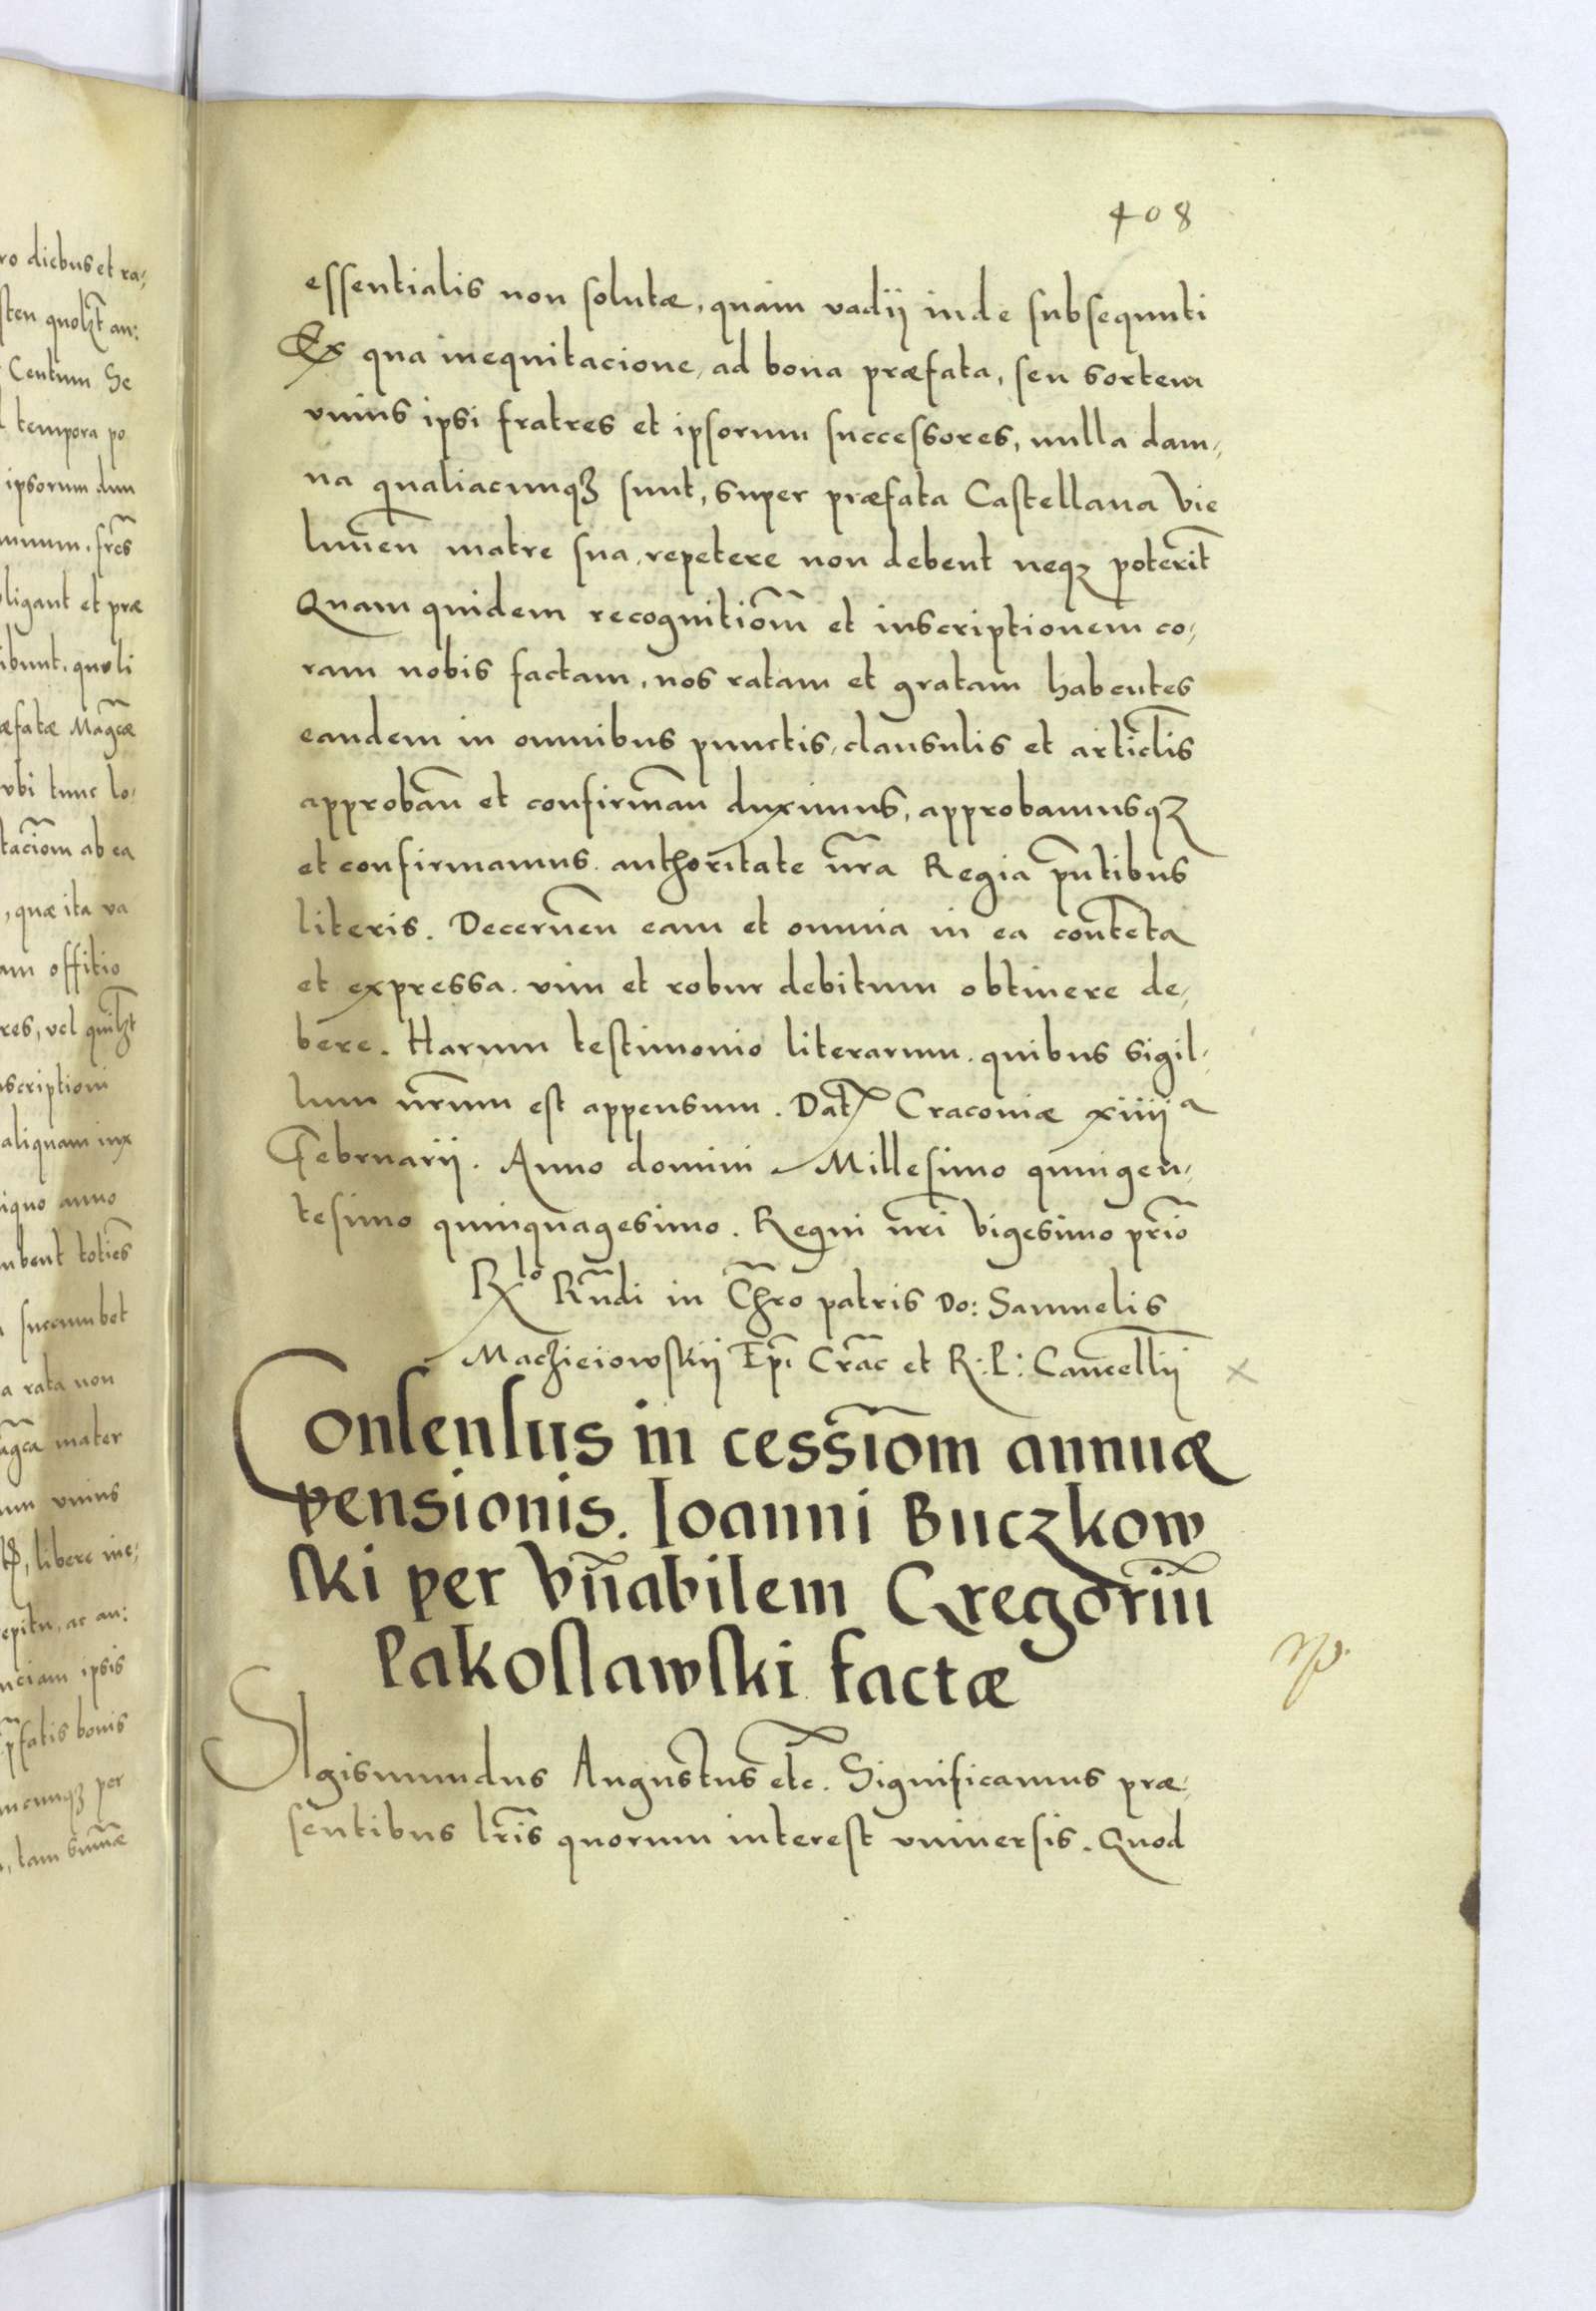 ro diebus et ra;
sten quolzt an:
Centum. Se
tempora po
ipsorum dum
fres
ligant et præ
ibunt. quoli
æfatæ Magcæ
vbi tunc lo:
taciom ab ea
, quæ ita va
am offitio
res, vel quilzt
scriptioni
aliquam iux
iquo anno
mbent toties
succumbet
a rata non
agca mater
um vnius
, libere me;
epitu, ac an:
nciam ipsis
pfatis bonis
cunqz per
, tam summæ
408
essentialis non solutæ, quam vadij inde subsequuti
Ex qua inequitacione, ad bona præfata, seu sortem
vnius ipsi fratres et ipsorum successores, nulla dam,
na qualiacunqz sunt, super præfata Castellana Vie
lunen matre sua, repetere non debent neqz poterit
Quam quidem recognitiom et inscriptionem co,
ram nobis factam, nos ratam et gratam habentes
eandem in omnibus punctis, clausulis et articlis
approban et confirman duximus, approbamusqz
et confirmamus. authoritate nra Regia pntibus
literis. Decernen eam et omnia in ea contenta
et expressa. vim et robur debitum obtinere de,
bere. Harum testimonio literarum. quibus sigil,
lum nrum est appensum. Dat Cracouiæ xiiij a
Februarij. Anno domini Millesimo quingen,
tesimo quinquagesimo. Regni nri Vigesimo primo
Rlo Rndi in Chro patris Do: Samuelis
Maczieiowskij Epi Crac et R: P: Cancellij x
Consensus in cessiom annuæ
pensionis. Ioanni Buczkow
ski per Vnabilem Gregorium
Pakoslawski factæ
SIgismundus Augustus etc. Significamus præ,
sentibus lris quorum interest vniuersis. Quod